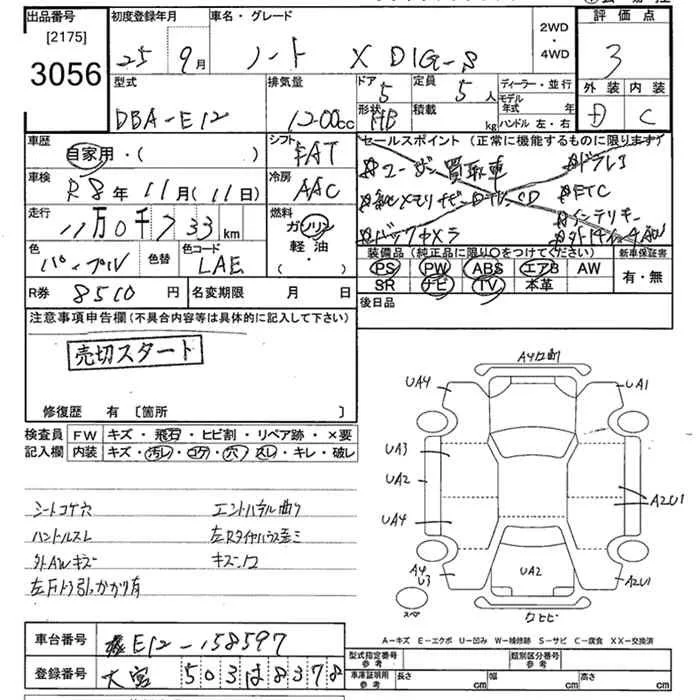 出品番号 初度登録年月 車名・グレード 2WD・4WD 評価点
[2175]
3056 25 9月 ノート X DIG-S 3
型式 排気量 ドア 5 定員 5人 ディーラー・並行 外装 内装
DBA-E12 1200cc 形状 HB 積載 kg モデル年式 年 D C
ハンドル 左・右
車歴 シフト セールスポイント(正常に機能するものに限ります)
自家用・( ) FAT ユーザー買取車 ドラレコ
車検 冷房 ETC
R8年11月(11日) AAC インテリキー
走行 燃料 バックカメラ
11万0千733km ガソリン
軽油
( )
色 色替 色コード 装備品(純正品に限り○をつけてください) 新車保証書
パープル LAE PS PW ABS エアB AW 有・無
SR ナビ TV 本革
R券 8510円 名変期限 月 日 後日品
注意事項申告欄(不具合内容等は具体的に記入して下さい)
売切スタート
修復歴 有 〔箇所 〕
検査員 FW キズ・飛石・ヒビ割・リペア跡・×要
記入欄 内装 キズ・汚レ・コゲ・穴・スレ・キレ・破レ
シートコゲ穴 エントパネル曲り
ハンドルスレ 左Rタイヤハウス歪ミ
外AWキズ キズ凹
左Fドア引っかかり有
UA4 UA1
UA3
UA2
UA4 A2U1
A4
U3 UA2 A2U1
スペア
ワレヒビ
A−キズ E−エクボ U−凹み W−補修跡 S−サビ C−腐食 XX−交換済
車台番号 E12-158597 型式指定番号 参考 類別区分番号 参考
登録番号 大宮 503 は 8378 車庫証明用 参考 長さ cm 幅 cm 高さ cm